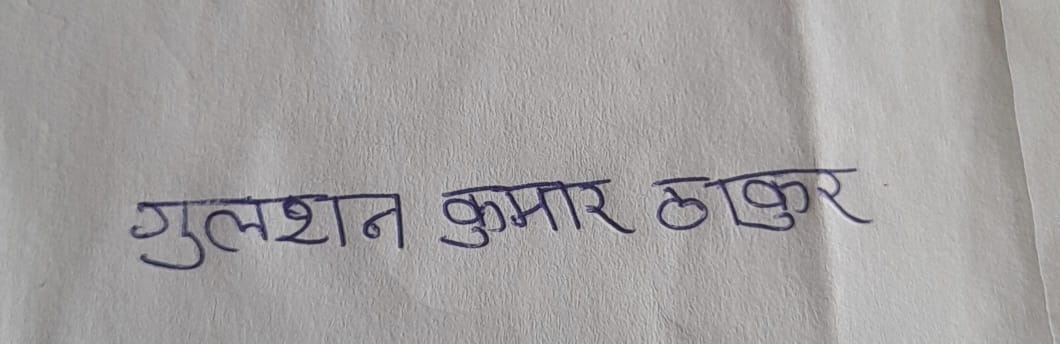 गुलशन कुमार ठाकुर